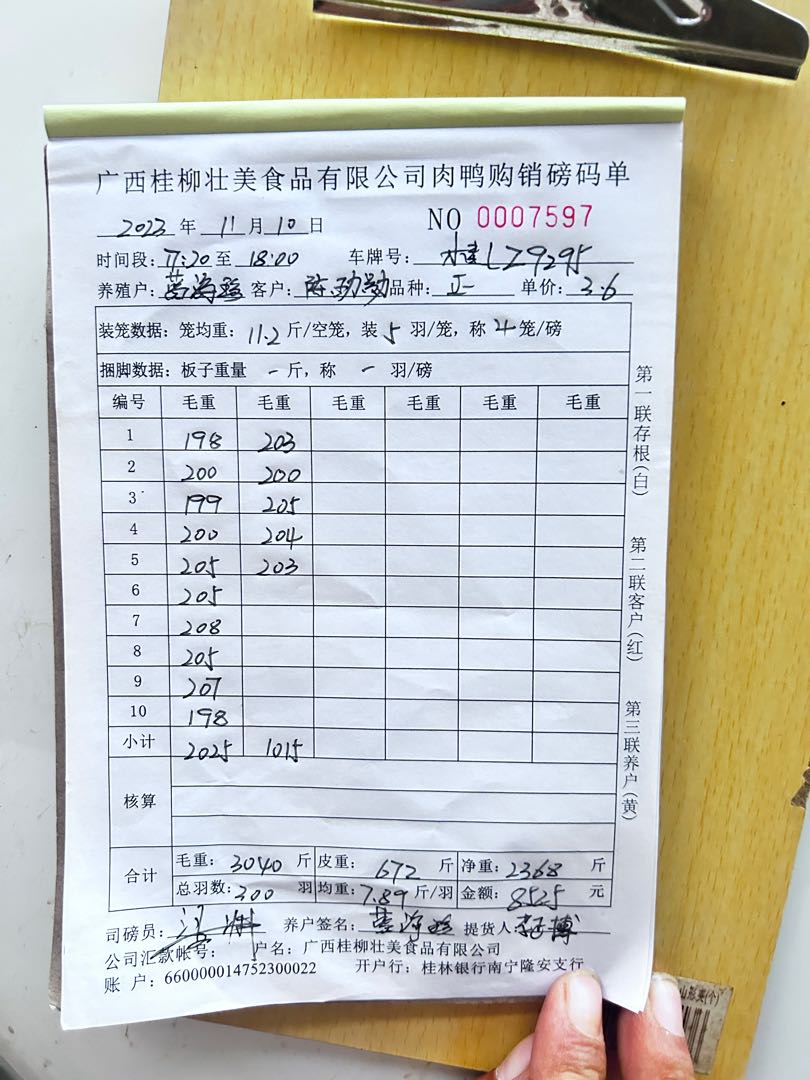 广西桂柳壮美食品有限公司肉鸭购销磅码单
2023 年 11 月 10 日 NO 0007597
时间段: 17:20 至 18:00 车牌号: 桂LZ9295
养殖户: 黄海珍 客户: 陈劲勋 品种: 正一 单价: 3.6
装笼数据: 笼均重: 11.2 斤/空笼, 装 5 羽/笼, 称 4 笼/磅
捆脚数据: 板子重量 一 斤, 称 一 羽/磅
编号 毛重 毛重 毛重 毛重 毛重 毛重
1 198 203
2 200 200
3 199 205
4 200 204
5 205 203
6 205
7 208
8 205
9 207
10 198
小计 2025 1015
核算
合计 毛重: 3040 斤 皮重: 672 斤 净重: 2368 斤
总羽数: 300 羽 均重: 7.89 斤/羽 金额: 8525 元
司磅员: 养户签名: 黄海珍 提货人:
公司汇款帐号: 户名: 广西桂柳壮美食品有限公司
账 户: 660000014752300022 开户行: 桂林银行南宁隆安支行
第一联存根(白)
第二联客户(红)
第三联养户(黄)